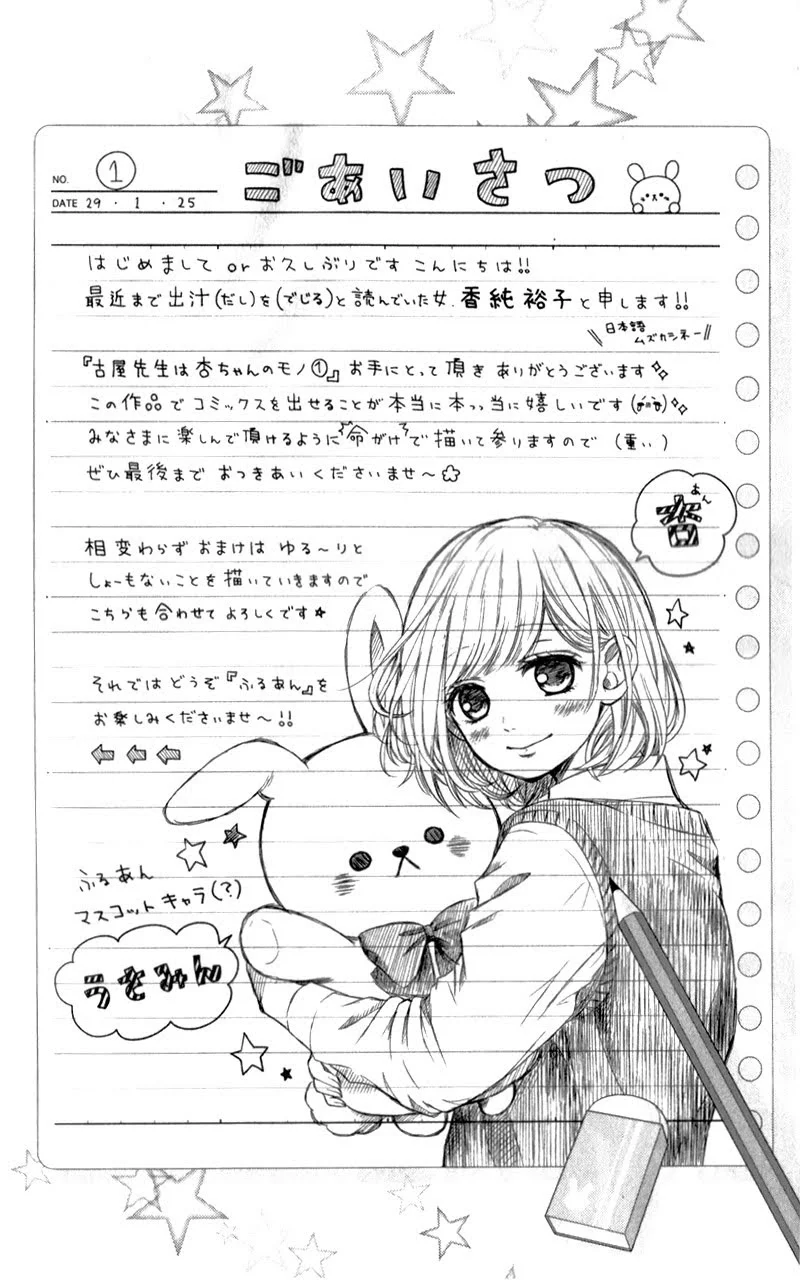 NO. ①
DATE 29 ・ 1 ・ 25
ごあいさつ
はじめまして or お久しぶりです こんにちは!!
最近まで出汁(だし)を(でじる)と読んでいた女、香純裕子と申します!!
\\日本語
ムズカシネー//
『古屋先生は杏ちゃんのモノ①』お手にとって頂き ありがとうございます
この作品でコミックスを出せることが本当に本っっ当に嬉しいです
みなさまに楽しんで頂けるように命がけで描いて参りますので (重い)
ぜひ最後まで おつきあいくださいませ〜
あん
杏
相変わらず おまけは ゆる〜りと
しょーもないことを描いていきますので
こちらも合わせて よろしくです☆
それでは どうぞ『ふるあん』を
お楽しみくださいませ〜!!
⇦ ⇦ ⇦
ふるあん
マスコットキャラ(?)
うさみん